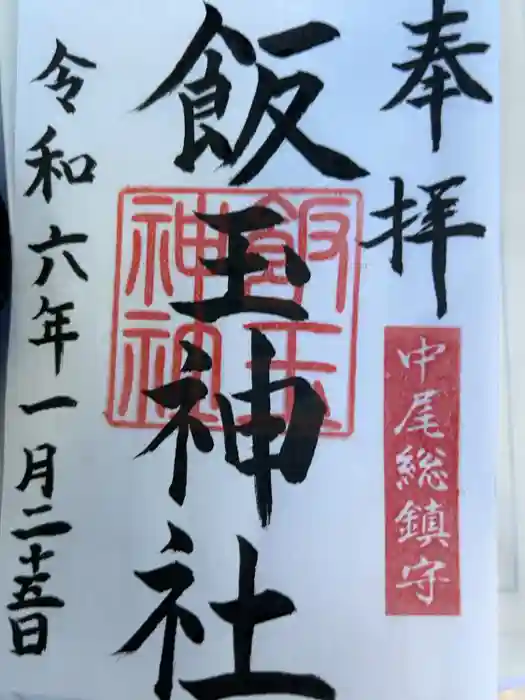 奉拝
中尾総鎮守
飯玉神社
飯玉神社
令和六年一月二十五日